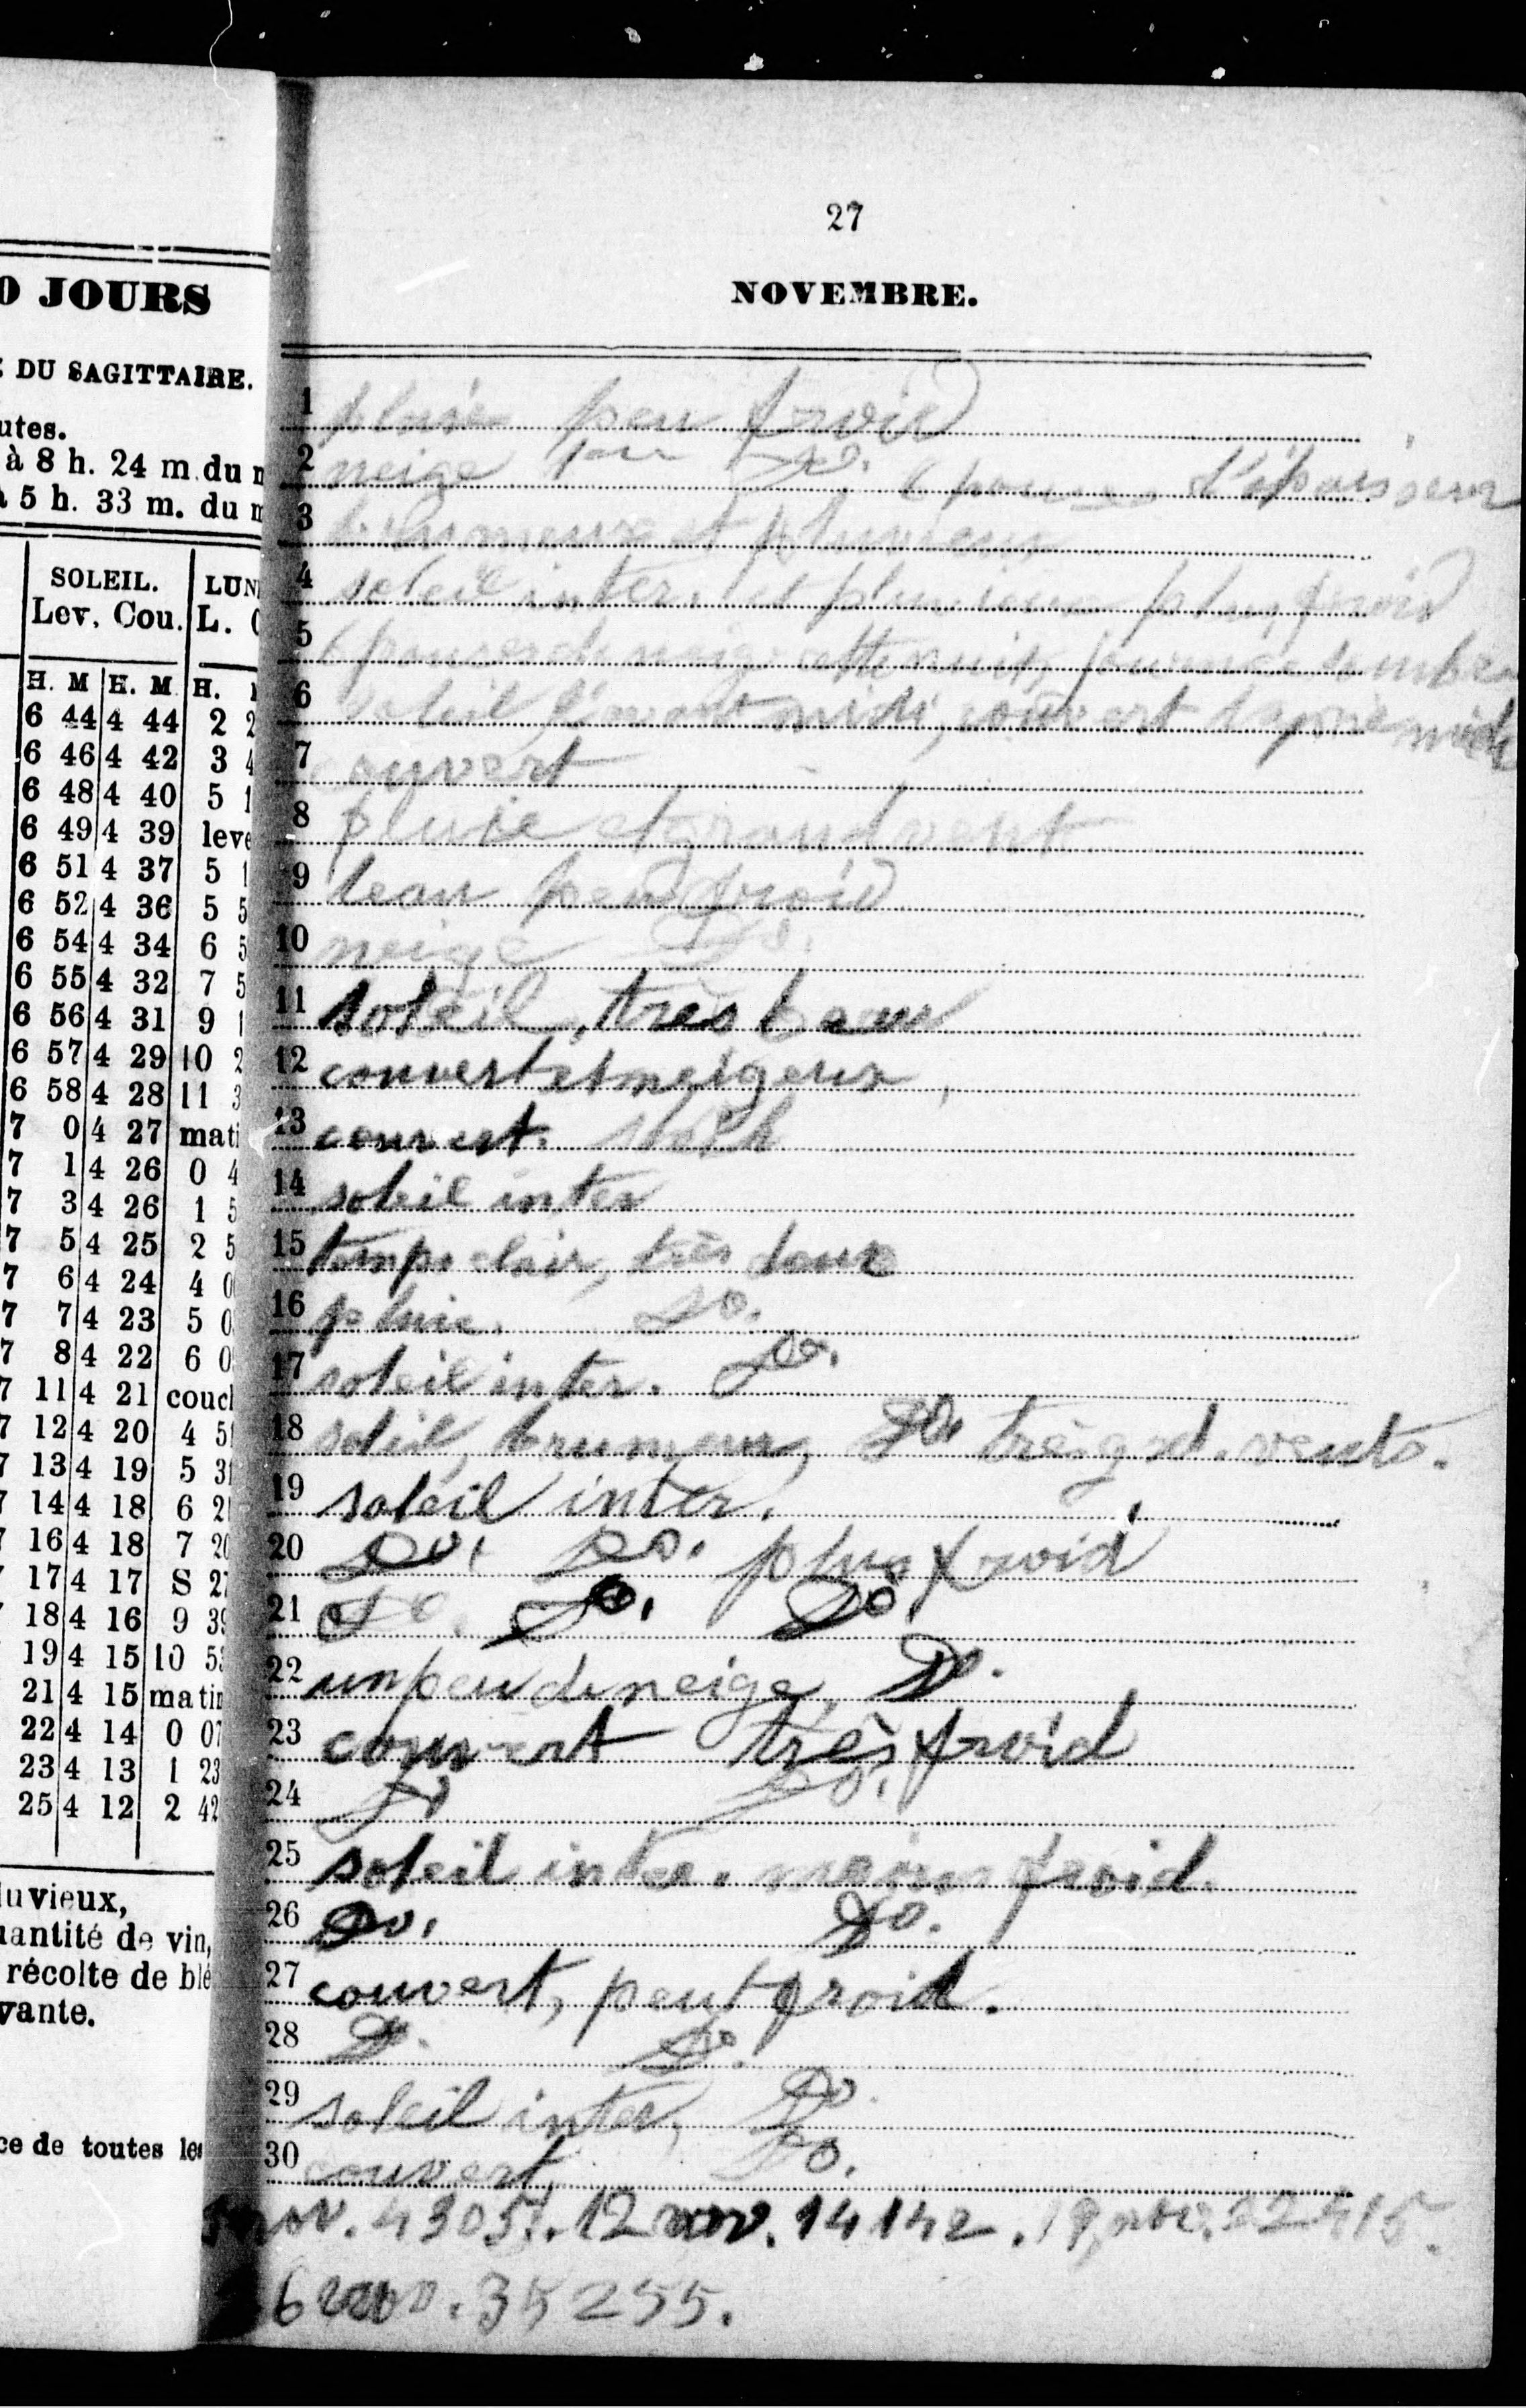 0 JOURS
DU SAGITTAIRE.
utes.
à 8 h. 24 m. du m
à 5 h. 33 m. du m
SOLEIL. LUN
Lev. Cou. L. C
H. M H. M H.
6 44 4 44 2 2
6 46 4 42 3 4
6 48 4 40 5 1
6 49 4 39 leve
6 51 4 37 5 1
6 52 4 36 5 5
6 54 4 34 6 5
6 55 4 32 7 5
6 56 4 31 9 1
6 57 4 29 10 2
6 58 4 28 11 3
7 0 4 27 mati
7 1 4 26 0 4
7 3 4 26 1 5
7 5 4 25 2 5
7 6 4 24 4 0
7 7 4 23 5 0
7 8 4 22 6 0
7 11 4 21 coucl
7 12 4 20 4 51
7 13 4 19 5 31
7 14 4 18 6 21
16 4 18 7 20
17 4 17 8 27
18 4 16 9 39
19 4 15 10 53
21 4 15 matin
22 4 14 0 07
23 4 13 1 23
25 4 12 2 42
luvieux,
uantité de vin,
récolte de blé
vante.
ce de toutes les
27
NOVEMBRE.
1 pluie peu froid
2 neige Do. 6 pouces d'épaisseur
3 brumeux et pluvieux
4 soleil inter. et pluvieux plus froid
5 6 pouces de neige cette nuit, journée sombre
6 soleil l'avant midi, couvert l'après midi
7 couvert
8 pluie et grand vent
9 beau peu froid
10 neige Do.
11 soleil, très beau
12 couvert et neigeux,
13 couvert.
14 soleil inter
15 temps clair, très doux
16 pluie. Do.
17 soleil inter. Do.
18 soleil, brumeux, Do. très grd. vent.
19 soleil inter.
20 Do. Do. plus froid
21 Do. Do. Do.
22 un peu de neige, Do.
23 couvert très froid
24 Do Do.
25 soleil inter. moins froid.
26 Do. Do.
27 couvert, peu froid.
28 Do. Do.
29 soleil inter, Do.
30 couvert, Do.
nov. 43051. 12 nov. 14142. 19 nov. 22415.
6 nov. 35255.